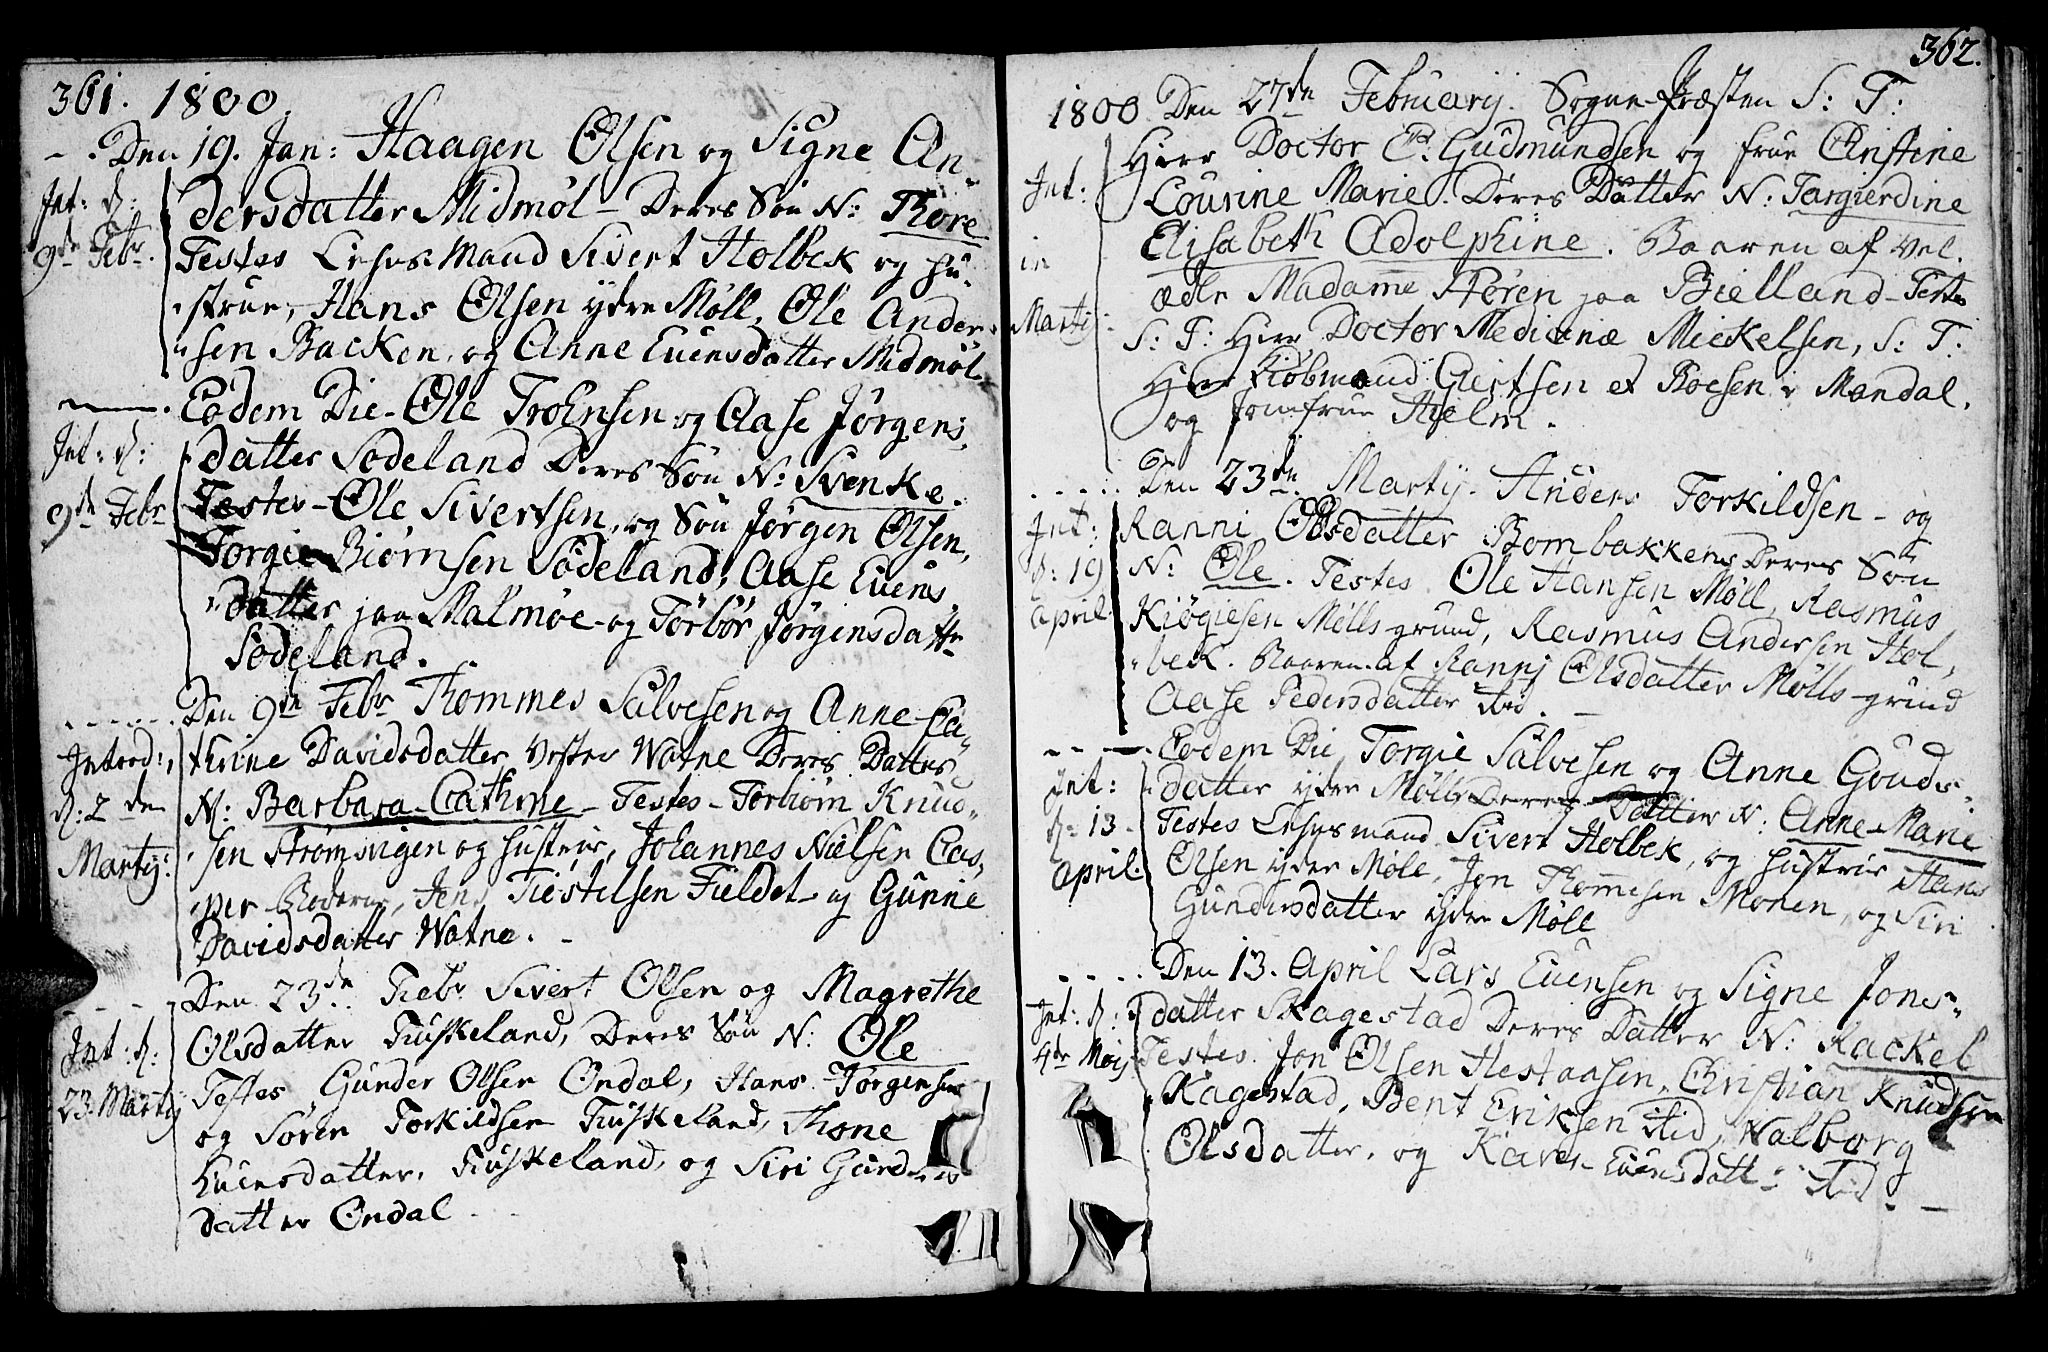 361. 1800.
Den 19. Jan: Haagen Olsen og Signe An-
Int: d:
9de Febr.
dersdatter Midmøl - Deres Søn N: Thore
Testes Lehnsmand Sivert Holbek og Hu-
strue, Hans Olsen ydre Møll, Ole Ander-
sen Backen, og Anne Evensdatter Midmøl.
Eodem Die - Ole Troensen og Aase Jørgens
Int: d:
9de Febr
datter Sodeland Deres Søn N: Svenke.
Testes - Ole Sivertsen, og Søn Jørgen Olsen,
Torgie Biørnsen Sodeland, Aase Evens
datter paa Malmøe og Torbør Jørgensdattr
Sodeland.
Den 9de Febr Thommes Salvesen og Anne Ca-
Introd:
d: 2den
Martij:
thrine Davidsdatter Vestre Watne Deres Datter
N: Barbara Cathrine - Testes - Torbiørn Knud-
sen Strømsvigen og Hustrue, Johannes Nielsen Cas-
per, Jens Tiestelsen Fieldet og Gunnie
Davidsdatter Watne.
Den 23de Febr Sivert Olsen og Magrethe
Int: d:
23. Martij
Olsdatter Fuskeland, Deres Søn N: Ole
Testes Gunder Olsen Ondal, Hans Torgensen
og Søren Torkildsen Fuskeland, Thone
Evensdatter, Fuskeland, og Siri Gunders
datter Ondal

362.
1800 Den 27de February. Sogne-Præsten S: T:
Int:
in
Martij:
Herr Doctor P: Gudmundsen og Frue Christine
Lourine Marie. Deres Datter N: Targierdine
Elisabeth Adolphine. Baaren af Vel.
ædle Madame Støren paa Bielland - Testes
S: T: Herr Doctor Medicinæ Mickelsen, S: T:
Herr Kiøbmand Giertsen et Roesen i Mandal.
og Jomfrue Hielm.
Den 23de Martij. Anders Torkildsen - og
Int:
d: 19
April
Ranni Olsdatter Bombakken Deres Søn
N: Ole. Testes Ole Hansen Møll, Rasmus
Kiøgiesen Mølls grund, Rasmus Andersen Hol-
bek. Baaren af Rannj Olsdatter Mølls-grund
Aase Pedersdatter Ibid.
Eodem Die Torgie Salvesen og Anne Gouds-
Int:
d: 13
April.
datter ydre Møll Deres Datter N: Anne Marie
Testes Lehnsmand Sivert Holbek, og Hustrue Hans
Olsen ydre Møll, Jon Thommesen Monen, og Siri
Gundersdatter ydre Møll
Den 13. April Lars Evensen og Signe Jons-
Int: d:
4de Maij
datter Skagestad Deres Datter N: Rackel
Testes Jon Olsen Hestaasen, Christian Knudsen
Kagestad, Bent Eriksen Ibid, Walborg
Olsdatter, og Karen Evensdatt: Ibid.